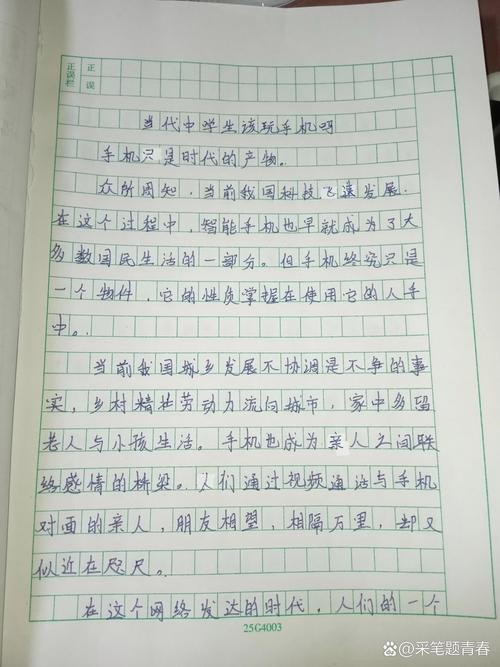 正误栏
正
误
当代中学生该玩手机吗
手机只是时代的产物。
众所周知，当前我国科技飞速发展.
在这个过程中，智能手机也早就成为了大
多数国民生活的一部分。但手机终究只是
一个物件，它的性质掌握在使用它的人手
中。
当前我国城乡发展不协调是不争的事
实，乡村精壮劳动力流向城市，家中多留
老人与小孩生活。手机也成为亲人之间联
络感情的桥梁。人们通过视频通话与手机
对面的亲人，朋友相望，相隔万里，却又
似近在咫尺。
在这个网络发达的时代，人们的一个
25G4003
@采笔题青春